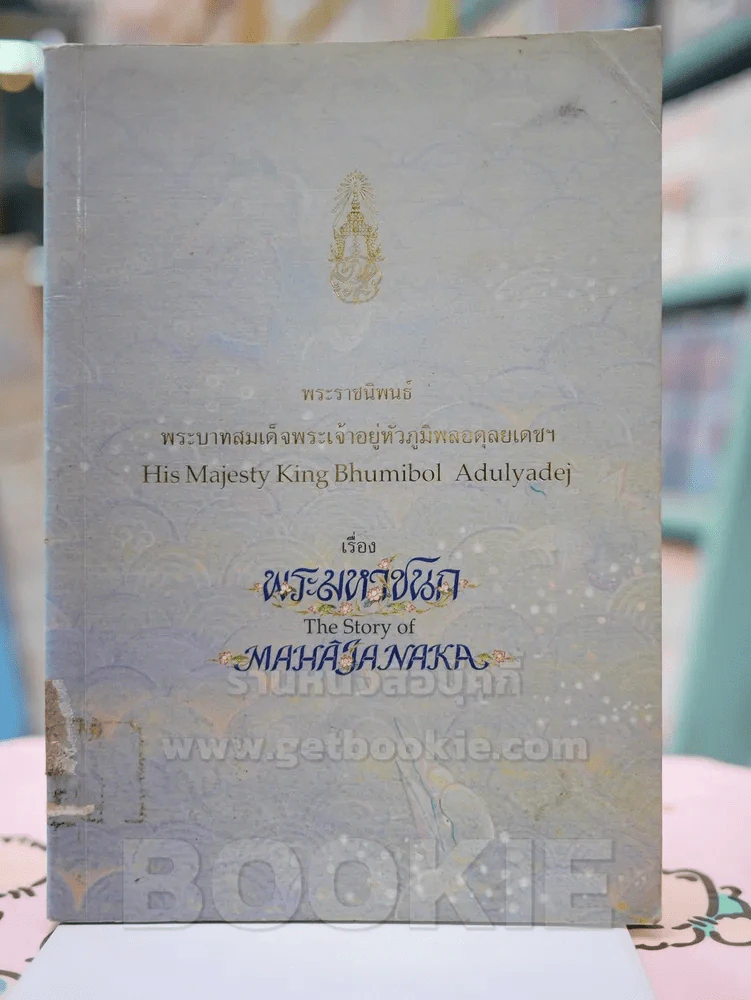 พระราชนิพนธ์
พระบาทสมเด็จพระเจ้าอยู่หัวภูมิพลอดุลยเดชฯ
His Majesty King Bhumibol Adulyadej
เรื่อง
พระมหาชนก
The Story of
MAHÂJANAKA
ร้านหนังสือบุคกี้
www.getbookie.com
BOOKIE